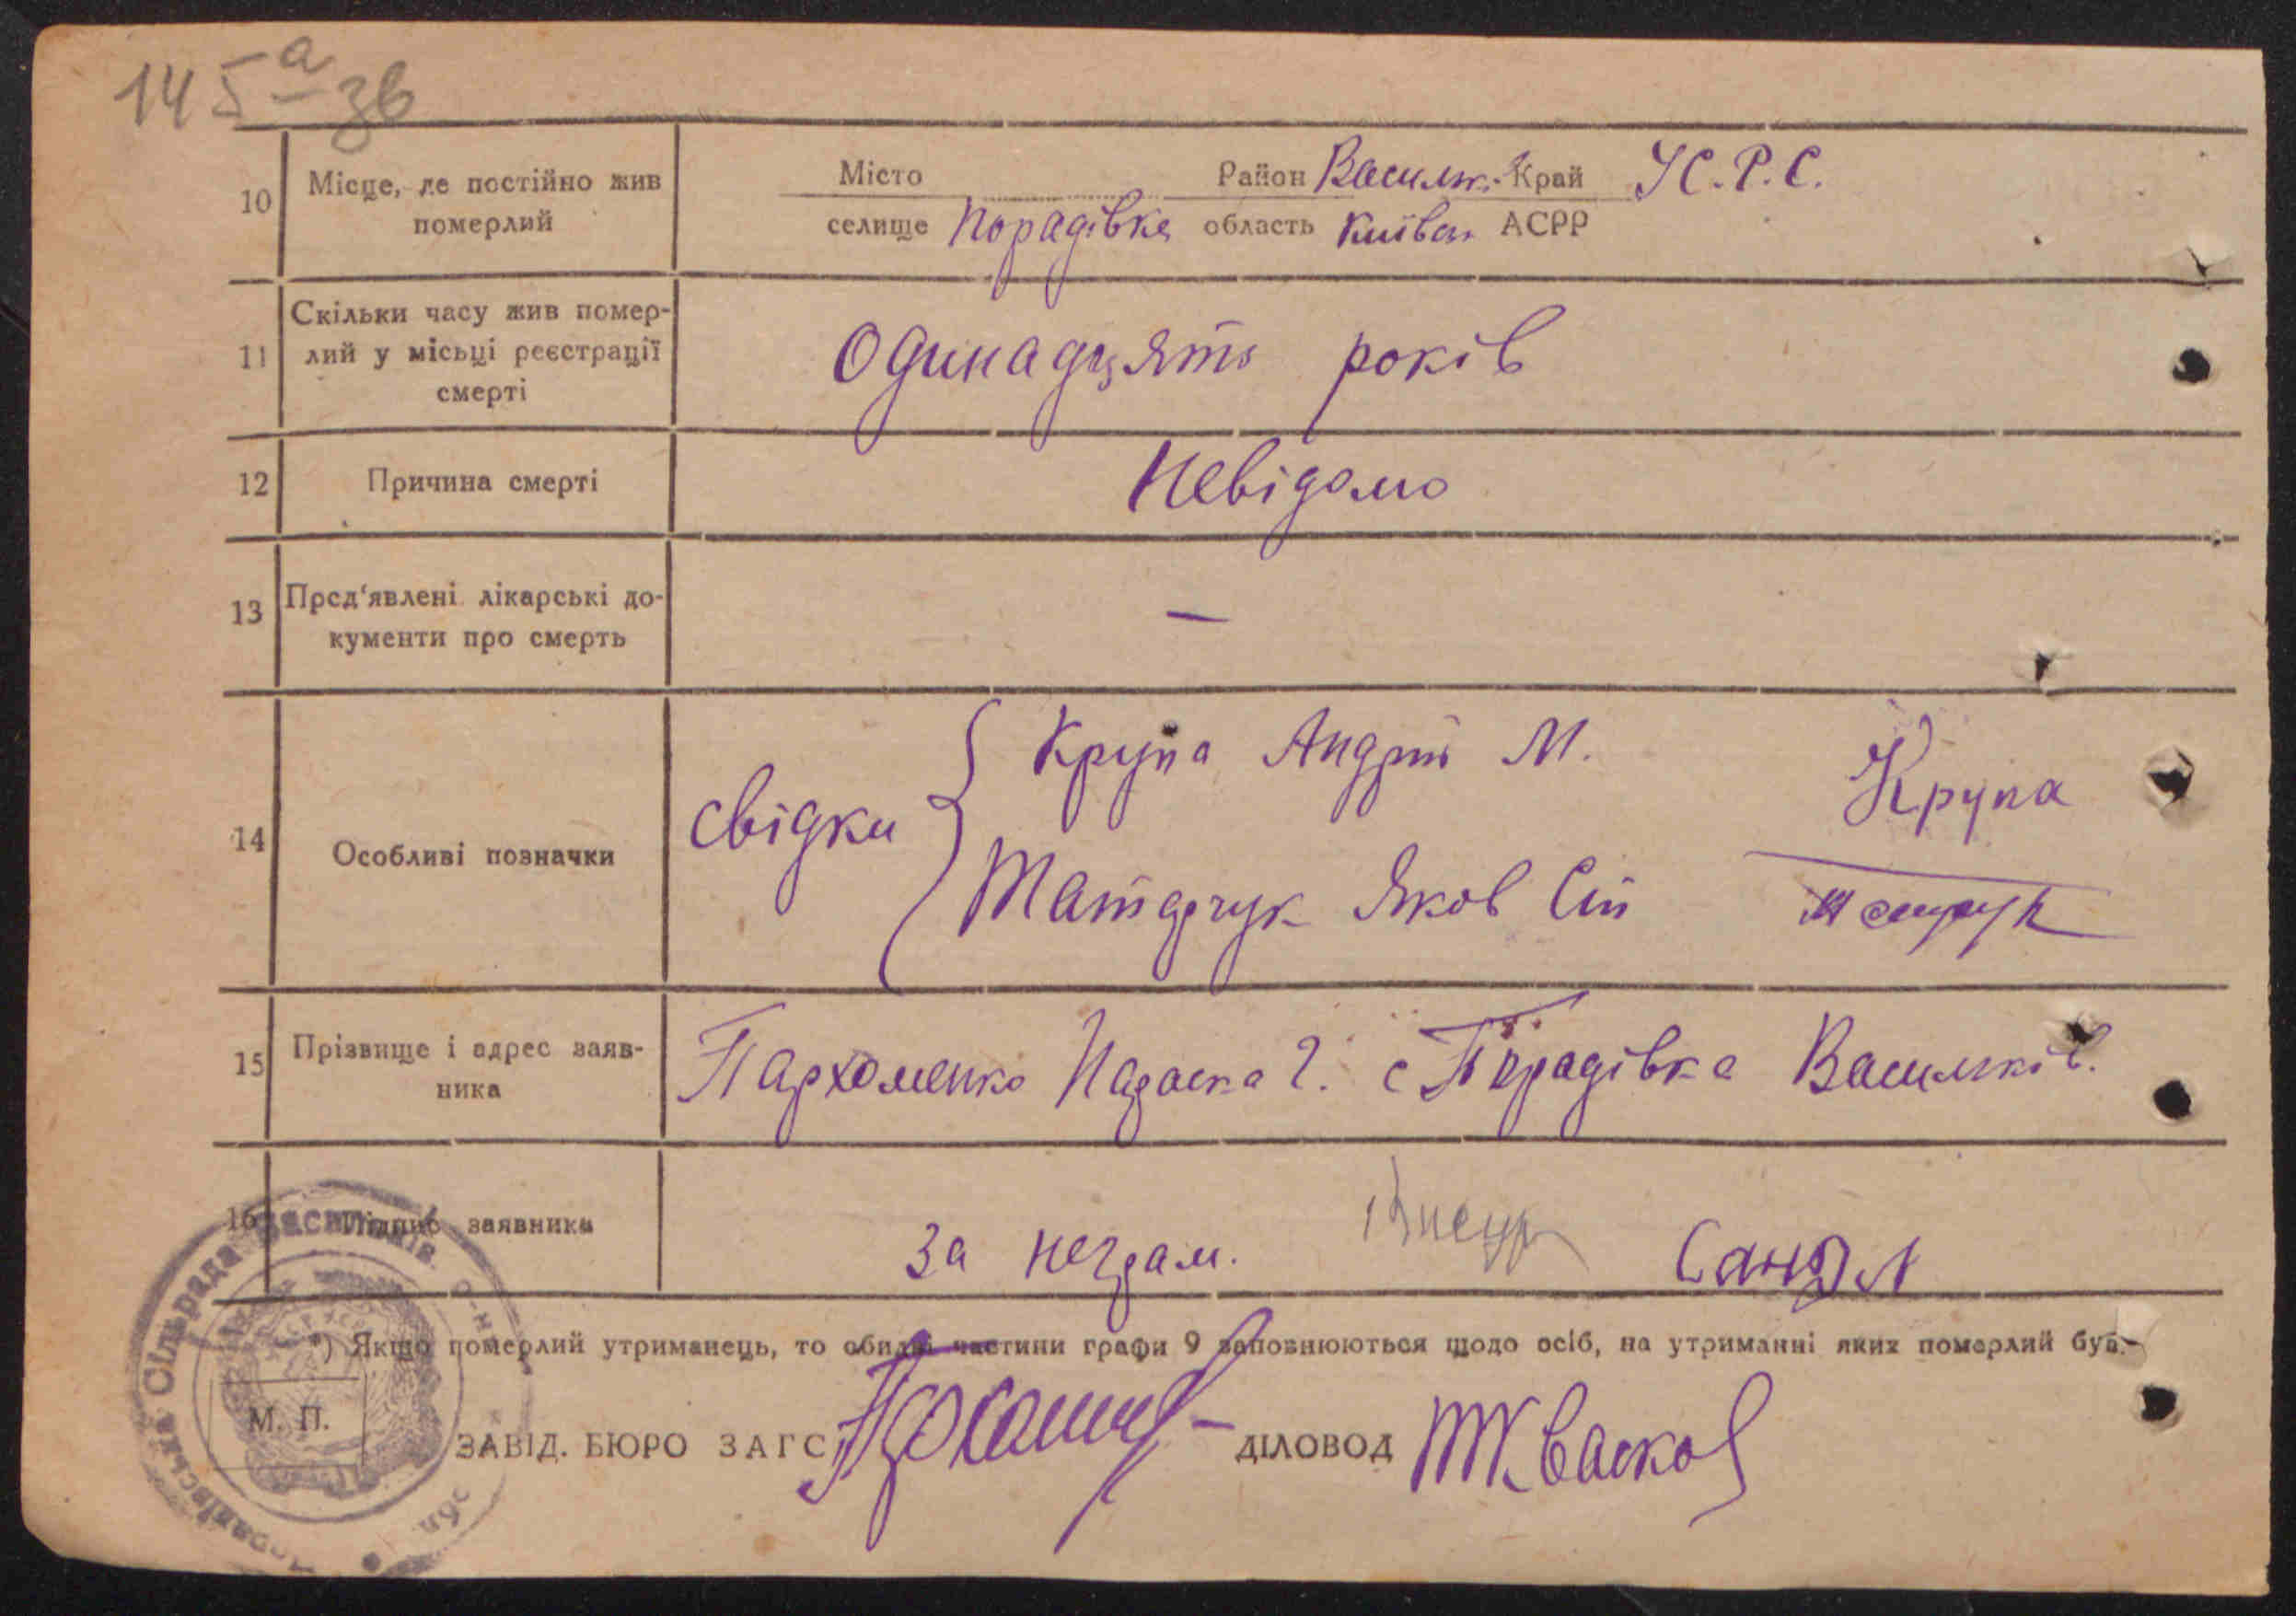 145а зв
10 Місце, де постійно жив померлий
Місто Район Васильк. Край У.С.Р.С.
селище Порадівка область Київськ АСРР
11 Скільки часу жив помер-
лий у місьці реєстрації
смерті
Одинадцять років
12 Причина смерті
Невідомо
13 Пред'явлені лікарські до-
кументи про смерть
—
14 Особливі позначки
свідки
Крупа Андрій М. Крупа
Яков
15 Прізвище і адрес заяв-
ника
Пархоменко Параска Г. с Порадівка Васильків.
16 Підпис заявника
За неграм.
*) Якщо померлий утриманець, то обидві частини графи 9 заповнюються щодо осіб, на утриманні яких померлий був.
М. П.
ЗАВІД. БЮРО ЗАГС
ДІЛОВОД
Сільрада Васильків. р-н обл